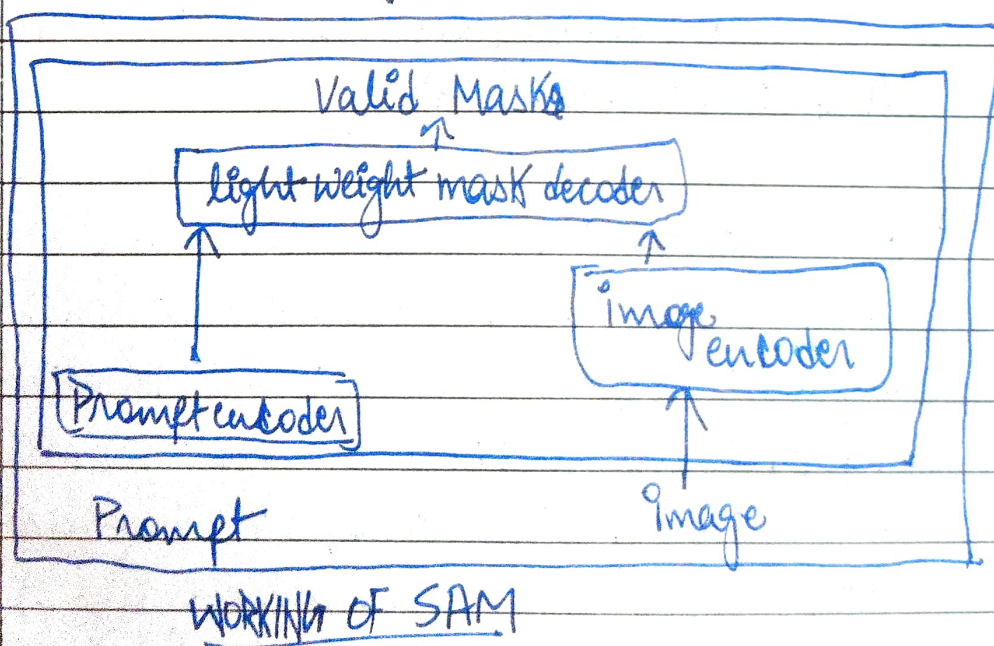 Valid Masks
light weight mask decoder
image
encoder
Prompt encoder
Prompt
image
WORKING OF SAM